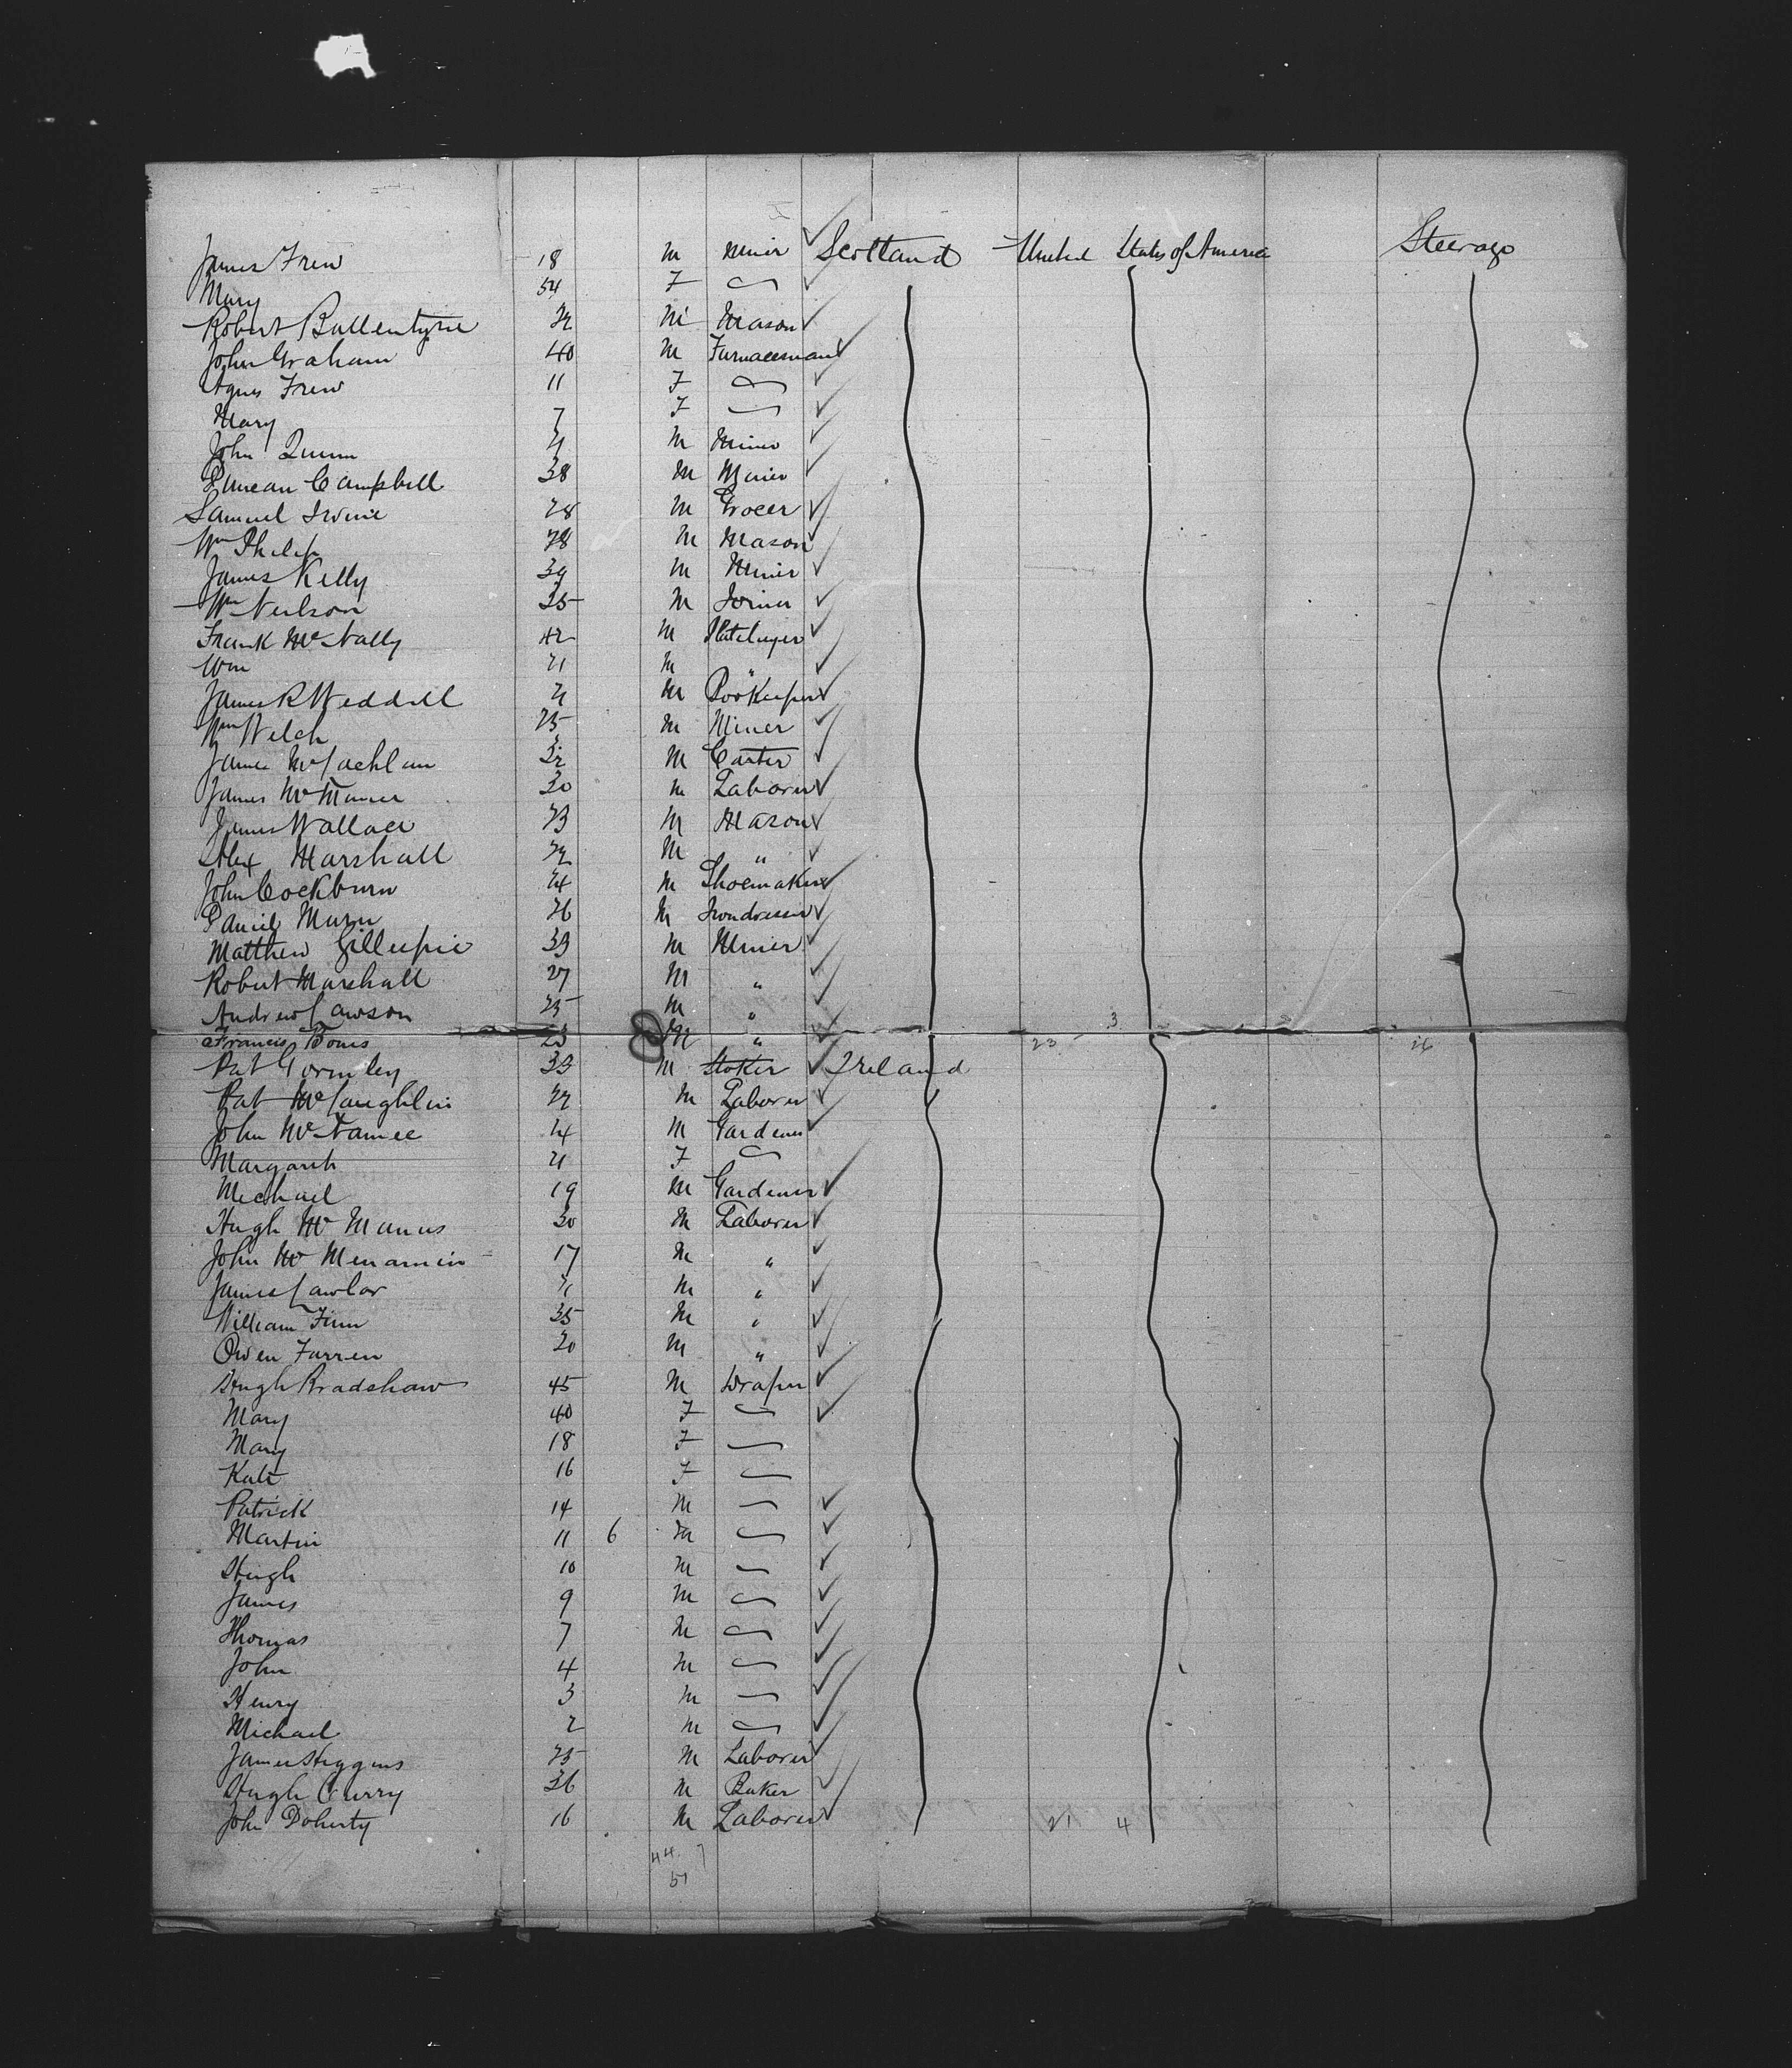 James Frew 18 M Miner Scotland United States of America Steerage
Mary 54 F
Robert Ballentyne 22 M Mason
John Graham 40 M Furnaceman
Agnes Frew 11 F
Mary 7 F
John Quinn 21 M Miner
Duncan Campbell 38 M Miner
Samuel Irvine 28 M Grocer
Wm Philip 28 M Mason
James Kelly 39 M Miner
Wm Neilson 35 M Joiner
Frank McNally 42 M Platelayer
Wm 21 M "
James R Weddell 21 M Bookeeper
Wm Welch 25 M Miner
James McLachlan 32 M Carter
James McManus 30 M Laborer
James Wallace 23 M Mason
Alex Marshall 22 M "
John Cockburn 24 M Shoemaker
Daniel Munn 26 M Irondresser
Matthew Gillespie 33 M Miner
Robert Marshall 27 M "
Andrew Lawson 25 M " 3
Francis Bones 23 M " 23 26
Pat Gormley 33 M Stoker Ireland
Pat McLaughlin 22 M Laborer
John McNamee 24 M Gardener
Margaret 21 F
Michael 19 M Gardener
Hugh McManus 30 M Laborer
John McMenamin 17 M "
James Lawlor 21 M "
William Finn 35 M "
Owen Farren 20 M "
Hugh Bradshaw 45 M Draper
Mary 40 F
Mary 18 F
Kate 16 F
Patrick 14 M
Martin 11 6 M
Hugh 10 M
James 9 M
Thomas 7 M
John 4 M
Henry 3 M
Michael 2 M
James Higgins 25 M Laborer
Hugh Curry 36 M Baker
John Doherty 16 M Laborer 21 4
44 7
51